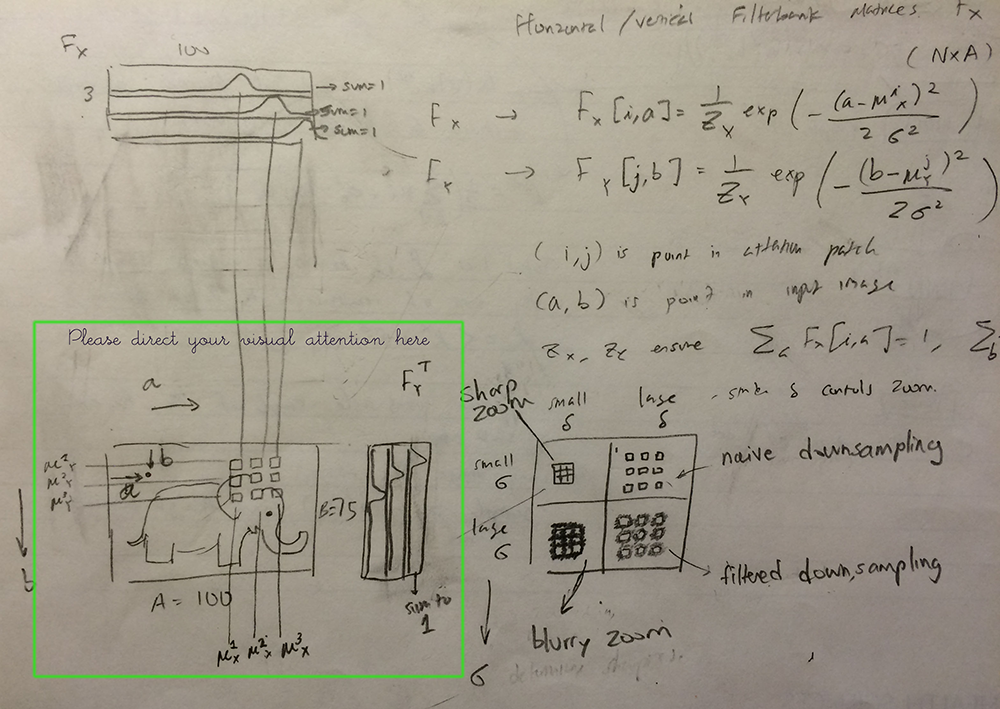 Horizontal / vertical Filterbank Matrices Fx
(N×A)
Fx
100
3
→ sum=1
→ sum=1
sum=1
Fx → Fx[i,a] = 1/Zx exp(-(a-μ^i_x)²/2σ²)
Fx → FY[j,b] = 1/ZY exp(-(b-μ^j_Y)²/2σ²)
(i,j) is point in attention patch
(a,b) is point in input image
Zx, ZY ensure Σ_a Fx[i,a]=1, Σ_b
Please direct your visual attention here
a
→
FY^T
b
a
B=75
A = 100
μ^1_x μ^2_x μ^3_x
sum to
1
b
sharp
zoom
small
δ
large
δ
controls zoom.
small
σ
large
σ
naive downsampling
filtered down,sampling
blurry zoom
σ